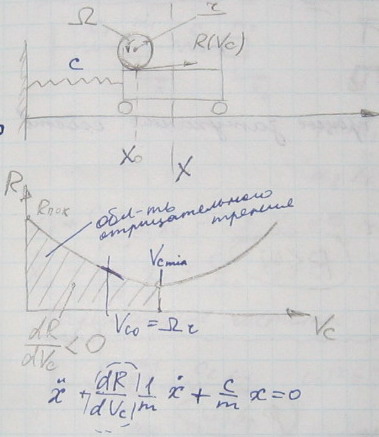 Ω r
c R(Vc)
X₀ X
R
Rпок
обл-ть
отрицательного
трения
Vcmin
dR/dVc < 0
Vc₀ = Ωr
Vc
ẍ + (dR/dVc) 1/m ẋ + c/m x = 0